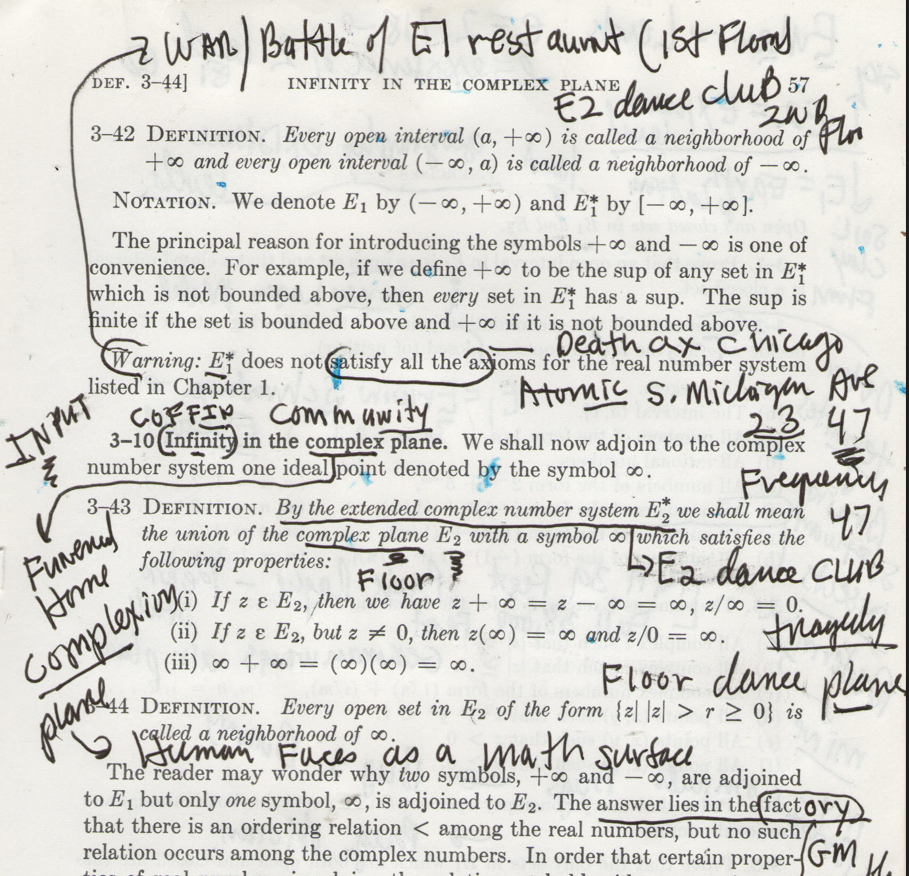 z WAR / Battle of E1 restaurant (1st Floor)
DEF. 3–44] INFINITY IN THE COMPLEX PLANE 57
E2 dance cluB
2ND
Flor
3–42 DEFINITION. Every open interval (a, +∞) is called a neighborhood of
+∞ and every open interval (−∞, a) is called a neighborhood of −∞.
NOTATION. We denote E₁ by (−∞, +∞) and E₁* by [−∞, +∞].
The principal reason for introducing the symbols +∞ and −∞ is one of
convenience. For example, if we define +∞ to be the sup of any set in E₁*
which is not bounded above, then every set in E₁* has a sup. The sup is
finite if the set is bounded above and +∞ if it is not bounded above.
Warning: E₁* does not satisfy all the axioms for the real number system
Death ax Chicago
listed in Chapter 1.
Atomic S. Michigan Ave
23 47
INPUT
COFFIN Community
3–10 Infinity in the complex plane. We shall now adjoin to the complex
number system one ideal point denoted by the symbol ∞.
Frequency
47
3–43 DEFINITION. By the extended complex number system E₂* we shall mean
the union of the complex plane E₂ with a symbol ∞ which satisfies the
following properties:
Floor
E2 dance CLUB
tragedy
Funeral
Home
complexion
plane
(i) If z ε E₂, then we have z + ∞ = z − ∞ = ∞, z/∞ = 0.
(ii) If z ε E₂, but z ≠ 0, then z(∞) = ∞ and z/0 = ∞.
(iii) ∞ + ∞ = (∞)(∞) = ∞.
Floor dance plane
44 DEFINITION. Every open set in E₂ of the form {z| |z| > r ≥ 0} is
called a neighborhood of ∞.
Human Faces as a math surface
The reader may wonder why two symbols, +∞ and −∞, are adjoined
to E₁ but only one symbol, ∞, is adjoined to E₂. The answer lies in the factory
that there is an ordering relation < among the real numbers, but no such
GM
relation occurs among the complex numbers. In order that certain proper-